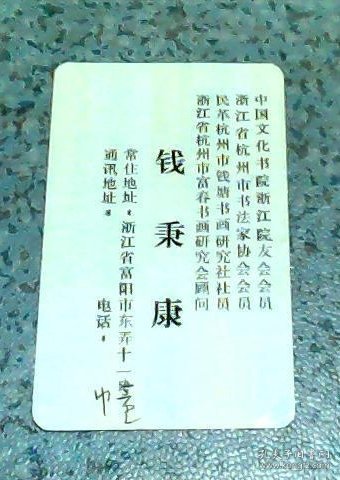 中国文化书院浙江院友会会员
浙江省杭州市书法家协会会员
民革杭州市钱塘书画研究社社员
浙江省杭州市富春书画研究会顾问
钱秉康
常住地址：浙江省富阳市东弄十一
通讯地址：
电话：